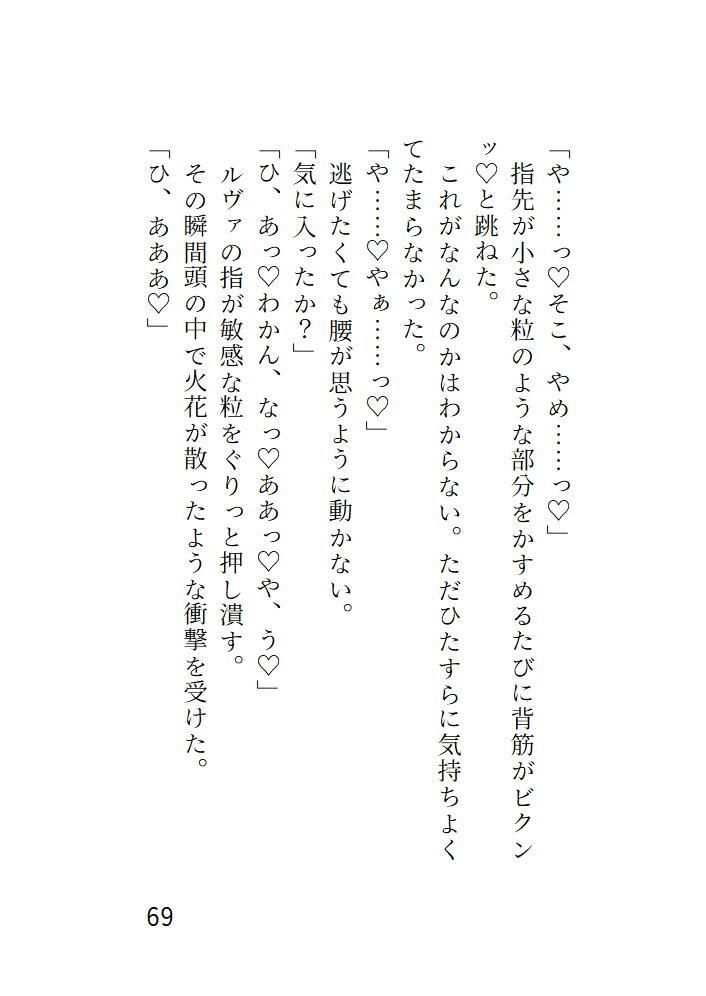 「や……っ♡そこ、やめ……っ♡」
指先が小さな粒のような部分をかすめるたびに背筋がビクン
ッ♡と跳ねた。
これがなんなのかはわからない。ただひたすらに気持ちよく
てたまらなかった。
「や……♡やぁ……っ♡」
逃げたくても腰が思うように動かない。
「気に入ったか？」
「ひ、あっ♡わかん、なっ♡ああっ♡や、う♡」
ルヴァの指が敏感な粒をぐりっと押し潰す。
その瞬間頭の中で火花が散ったような衝撃を受けた。
「ひ、あああ♡」
69